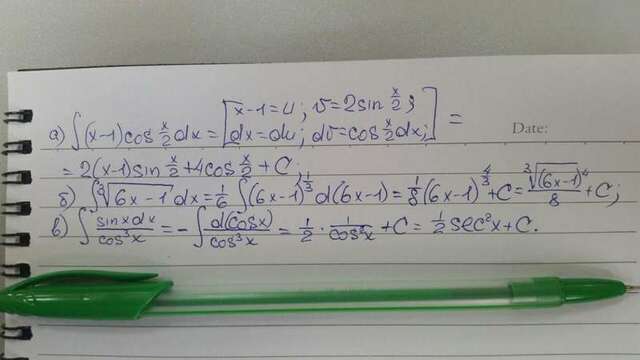 а) ∫(x-1)cos x/2 dx = [x-1=u; v=2sin x/2; dx=du; dv=cos x/2 dx;] =
Date:
= 2(x-1)sin x/2 + 4cos x/2 + C;
б) ∫∛(6x-1) dx = 1/6 ∫(6x-1)^(1/3) d(6x-1) = 1/8 (6x-1)^(4/3) + C = ∛((6x-1)^4)/8 + C;
в) ∫ sinx dx/cos³x = -∫ d(cosx)/cos³x = 1/2 · 1/cos²x + C = 1/2 sec²x + C.